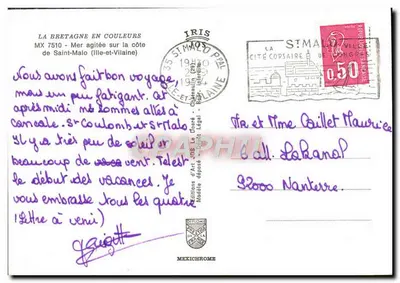 LA BRETAGNE EN COULEURS
MX 7510 - Mer agitée sur la côte
de Saint-Malo (Ille-et-Vilaine)
IRIS
Nous avons fait bon voyage,
mais un peu fatigant. cet
après midi ns sommes allés à
cancale. St coulomb et St Malo
Il y a très peu de soleil et
beaucoup de vent. Tel est
le début des vacances. Je
vous embrasse tous les quatre
(lettre à venir)
Brigitte
35 ST MALO PPAL
ILLE-ET-VILAINE
ST MALO
LA
CITÉ CORSAIRE
VILLE
0,50
Mr et Mme Caillet Maurice
6 all. Lakanal
92000 Nanterre.
Editions d'Art JOS Le Doaré - Châteaulin
Modèle déposé
MEXICHROME